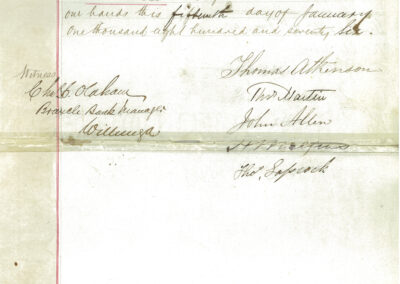 our hands this fifteenth day of January
one thousand eight hundred and seventy six.
Witness
Thomas Atkinson
Thos Martin
Branch Bank Manager
Willunga
John Allen
Thos.